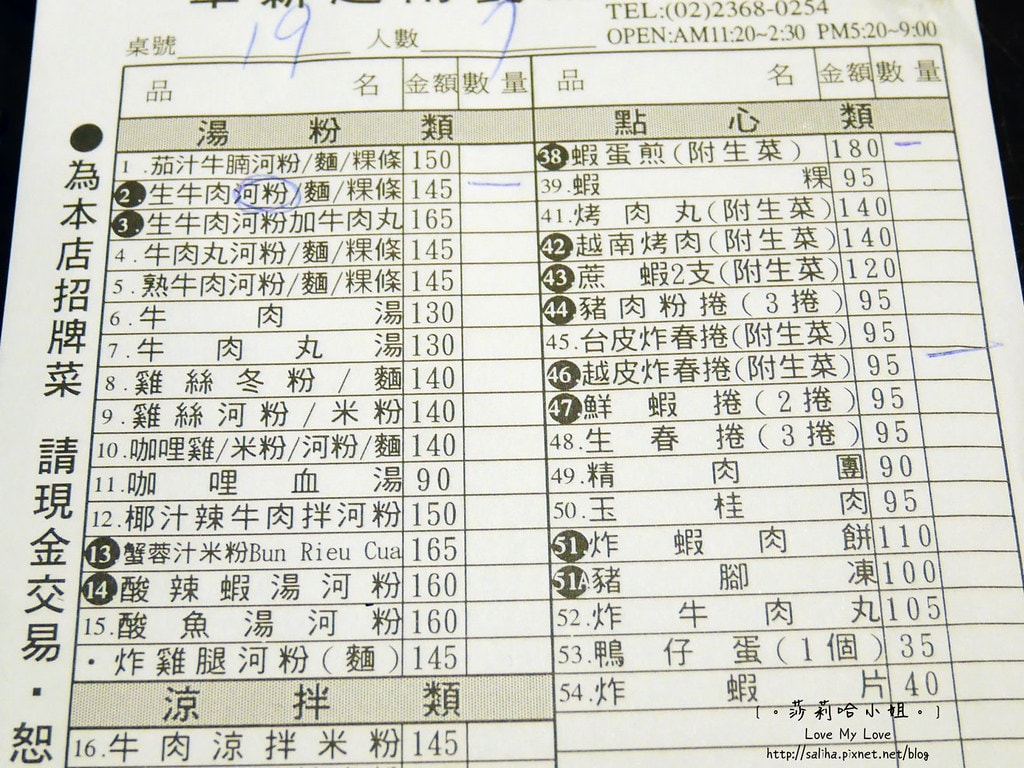 TEL:(02)2368-0254
桌號 19 人數 7 OPEN:AM11:20~2:30 PM5:20~9:00
品 名 金額 數量
湯粉類
1.茄汁牛腩河粉/麵/粿條 150
2.生牛肉河粉/麵/粿條 145 一
3.生牛肉河粉加牛肉丸 165
4.牛肉丸河粉/麵/粿條 145
5.熟牛肉河粉/麵/粿條 145
6.牛肉湯 130
7.牛肉丸湯 130
8.雞絲冬粉/麵 140
9.雞絲河粉/米粉 140
10.咖哩雞/米粉/河粉/麵 140
11.咖哩血湯 90
12.椰汁辣牛肉拌河粉 150
13 蟹蓉汁米粉Bun Rieu Cua 165
14 酸辣蝦湯河粉 160
15.酸魚湯河粉 160
・炸雞腿河粉(麵) 145
涼拌類
16.牛肉涼拌米粉 145
品 名 金額 數量
點心類
38 蝦蛋煎(附生菜) 180 一
39.蝦粿 95
41.烤肉丸(附生菜) 140
42 越南烤肉(附生菜) 140
43 蔗蝦2支(附生菜) 120
44 豬肉粉捲(3捲) 95
45.台皮炸春捲(附生菜) 95
46.越皮炸春捲(附生菜) 95 一
47 鮮蝦捲(2捲) 95
48.生春捲(3捲) 95
49.精肉團 90
50.玉桂肉 95
51 炸蝦肉餅 110
51A 豬腳凍 100
52.炸牛肉丸 105
53.鴨仔蛋(1個) 35
54.炸蝦片 40
●為本店招牌菜 請現金交易・恕
{。莎莉哈小姐。}
Love My Love
http://saliha.pixnet.net/blog